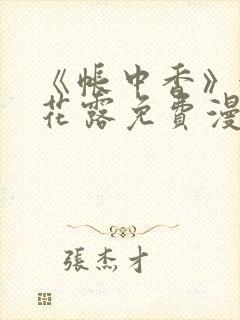 《帳中香》
花露免費漫
張杰才